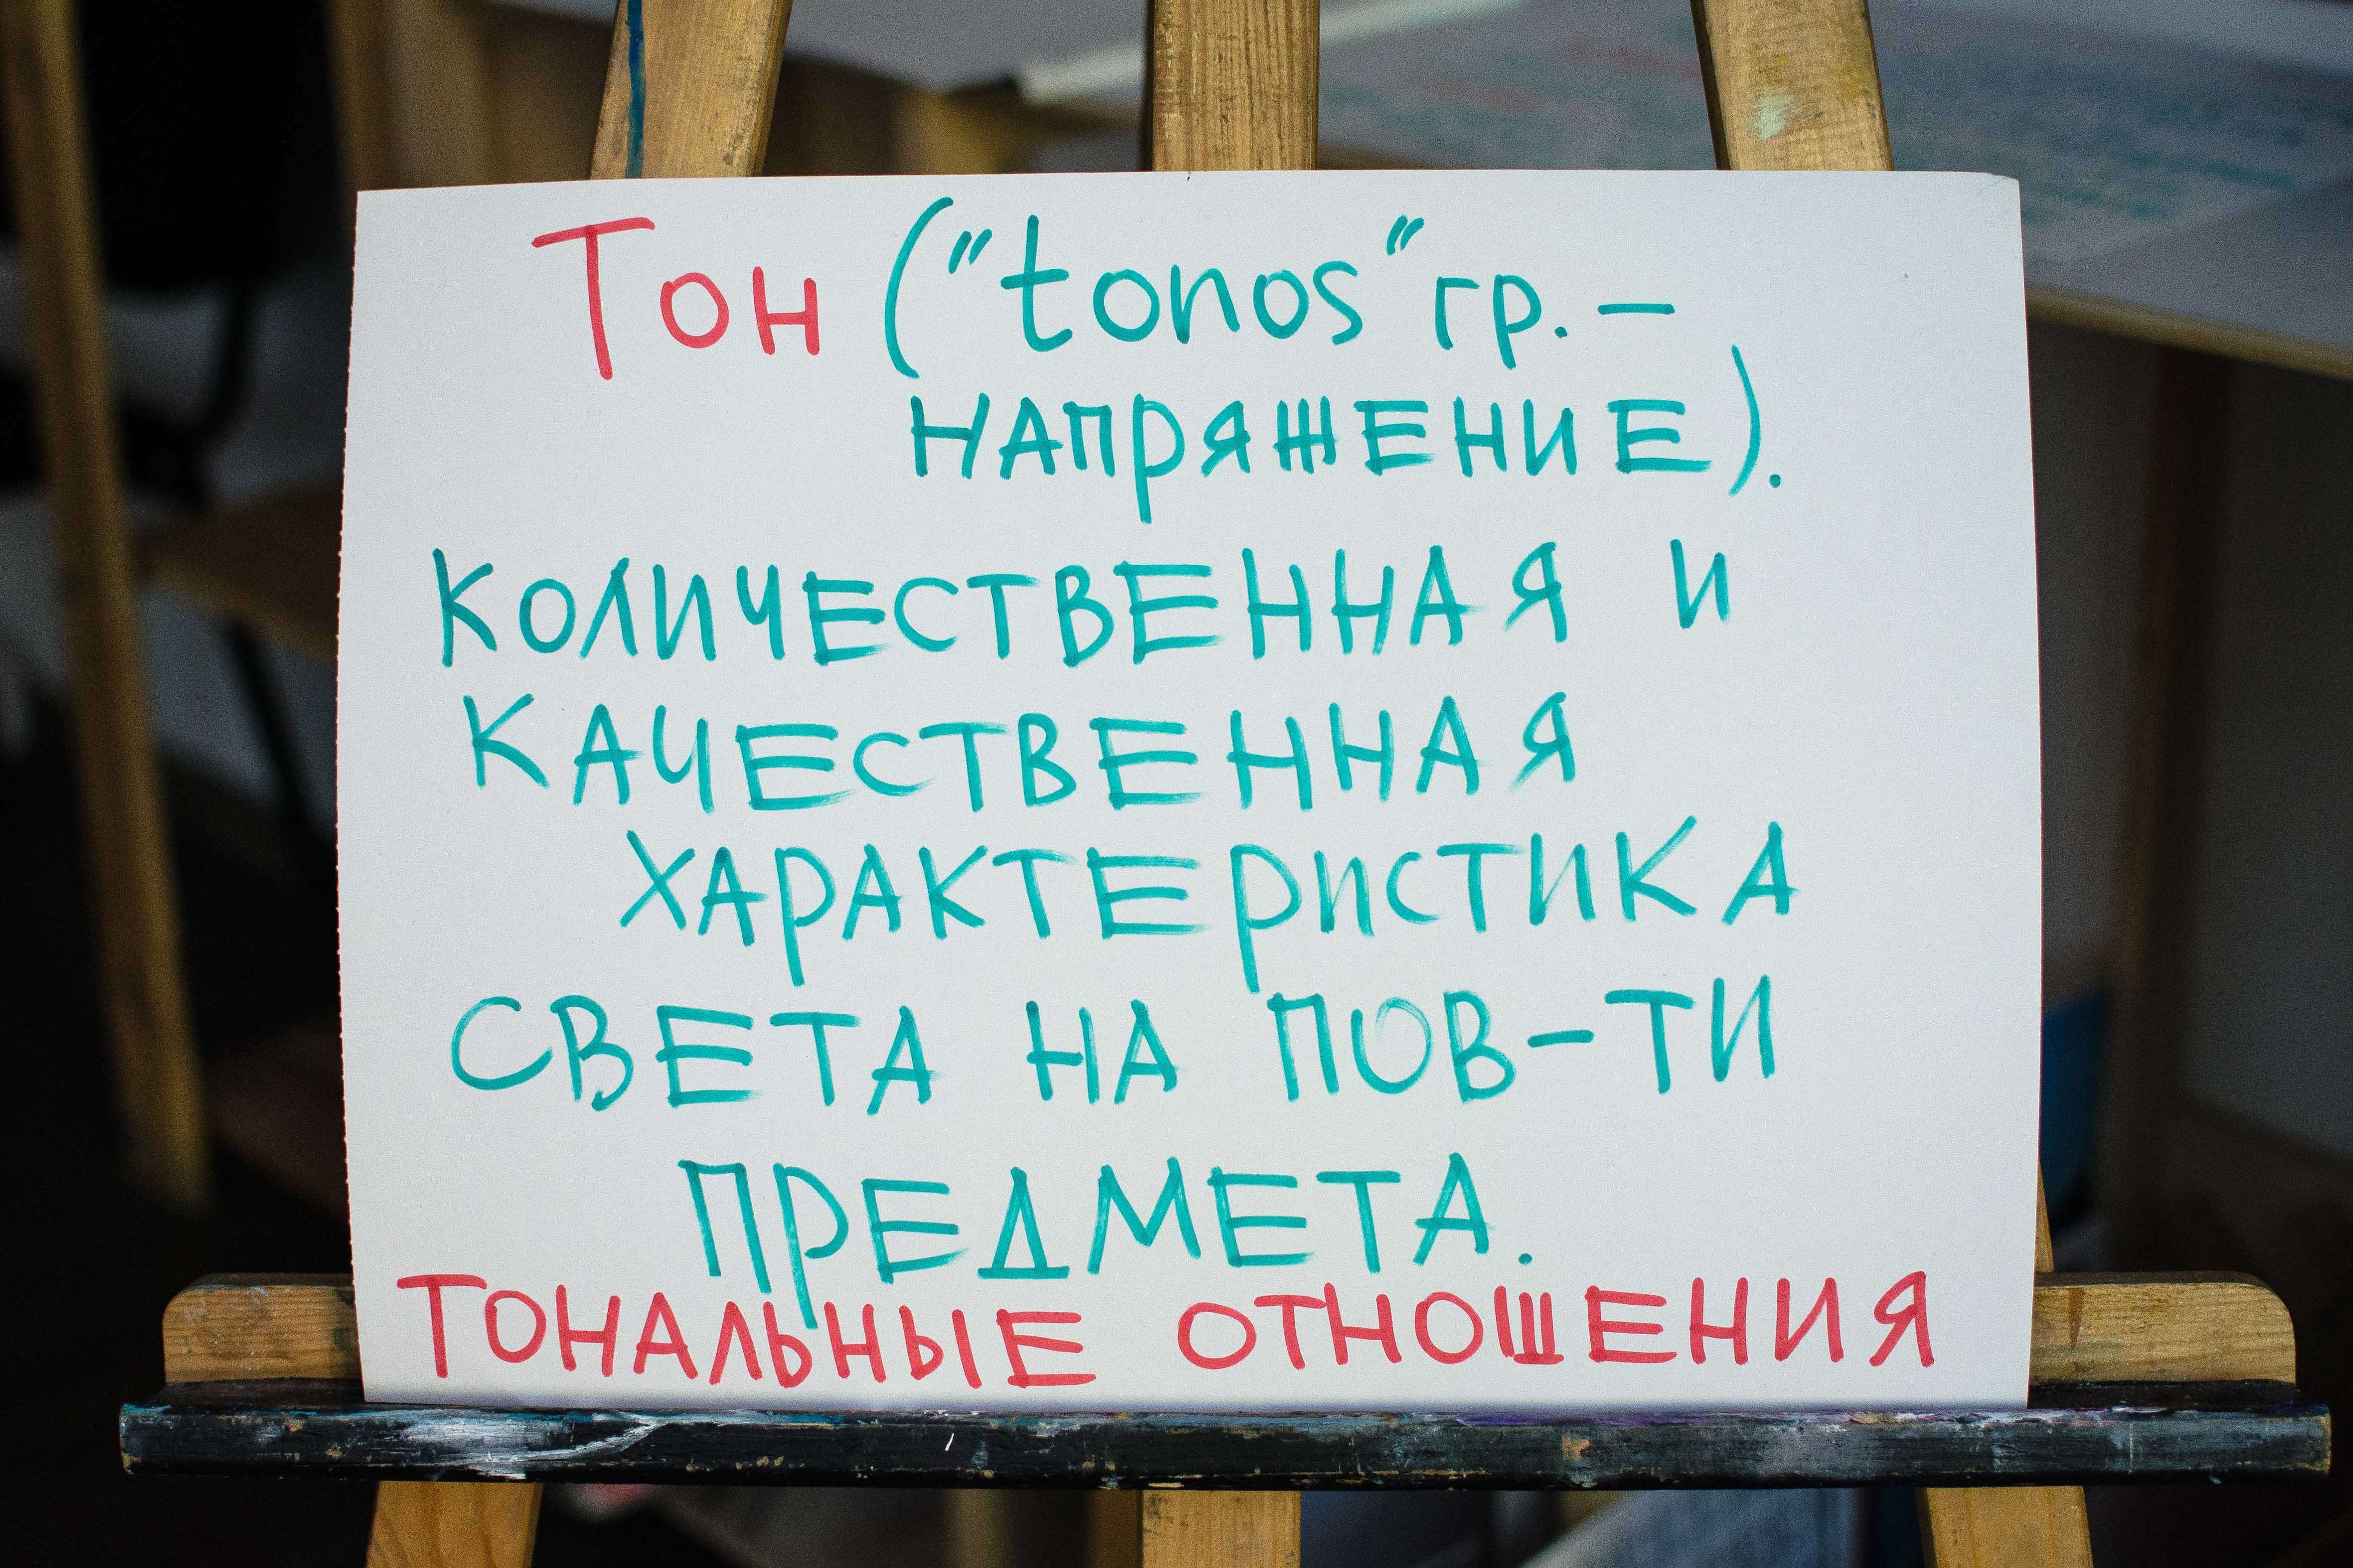 Тон ("tonos" гр. –
напряжение).
количественная и
качественная
характеристика
света на пов-ти
предмета.
Тональные отношения